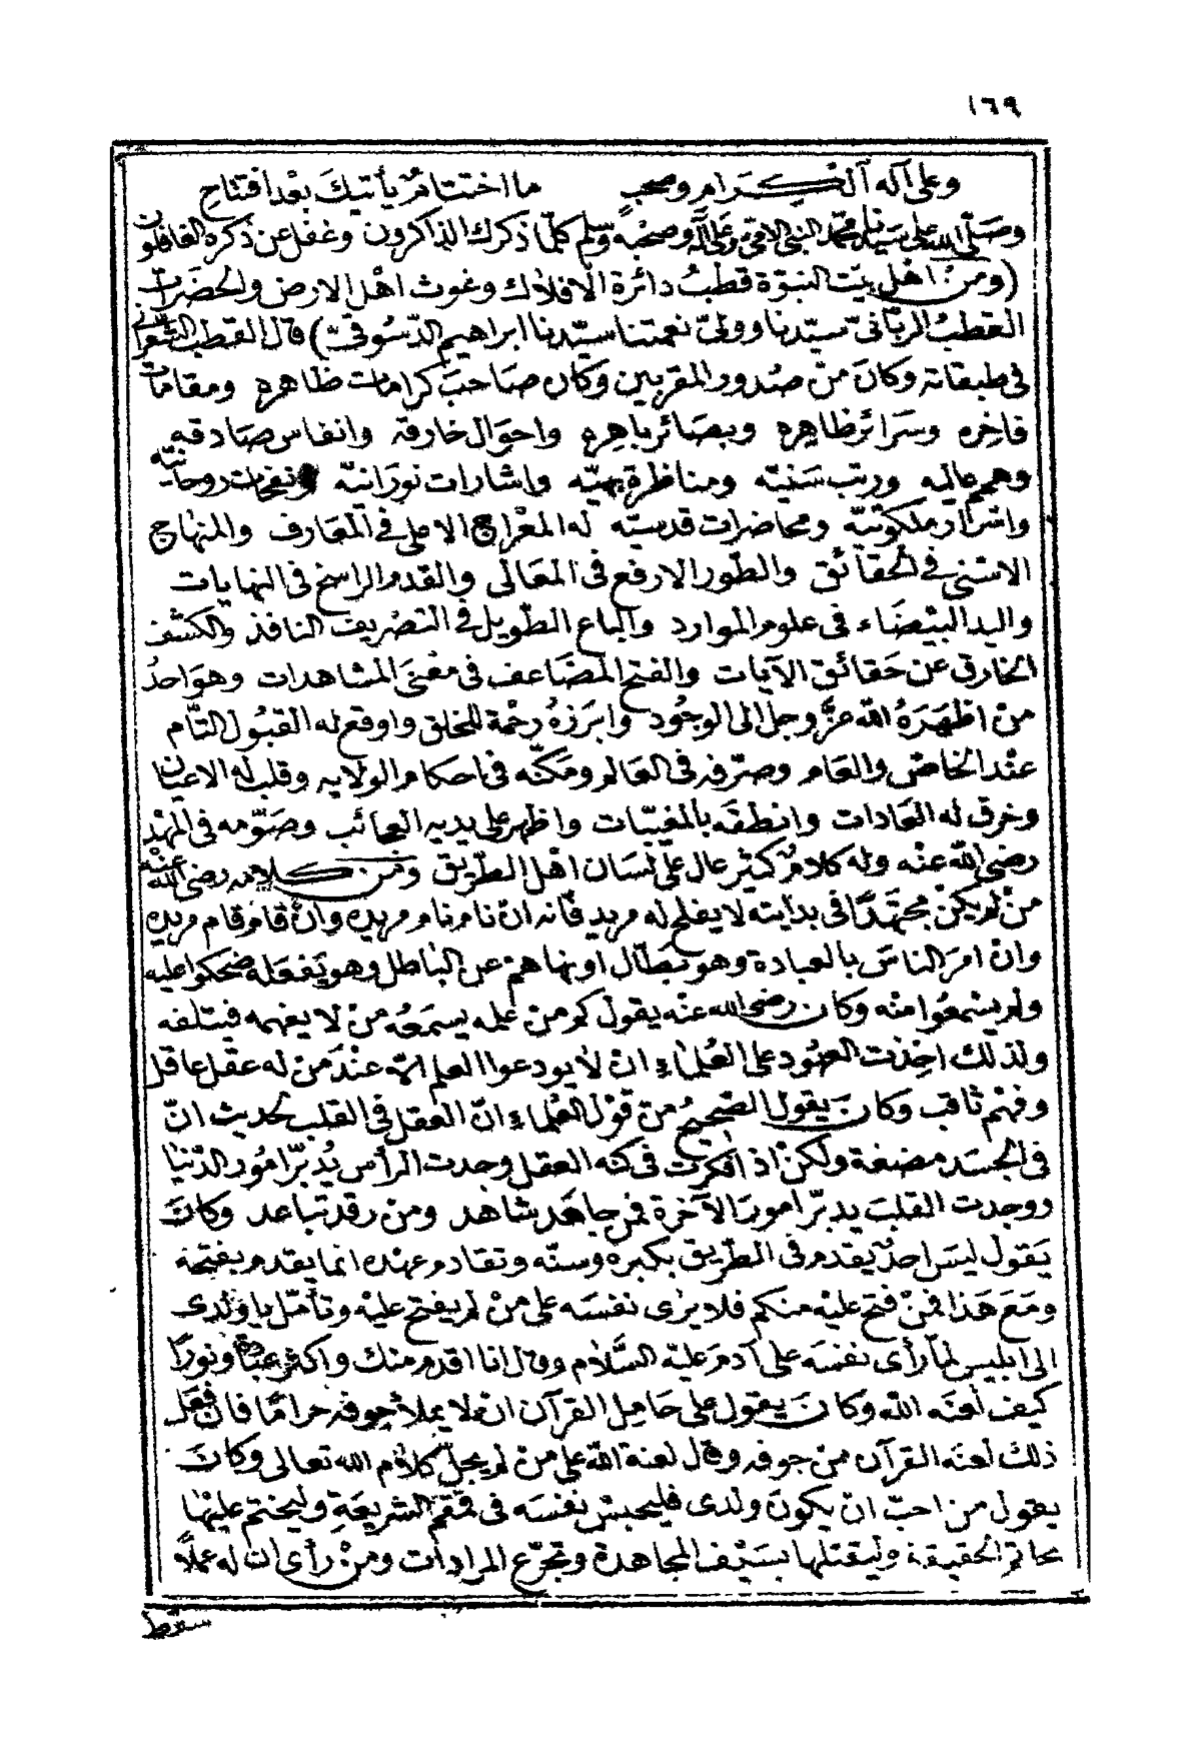 ١٦٩
وعلى آله الكرام وصحب ما اختتام يأتيك بعد افتتاح
وصلى الله على سيدنا محمد النبي الامي وعلى آله وصحبه وسلم كلما ذكرك الذاكرون وغفل عن ذكره الغافلون
(ومن اهل بيت النبوة قطب دائرة الافلاك وغوث اهل الارض والحضرات
القطب الرباني سيدنا وولي نعمتنا سيدنا ابراهيم الدسوقي) قال القطب الشعراني
في طبقاته وكان من صدور المقربين وكان صاحب كرامات ظاهره ومقامات
فاخره وسرائر ظاهره وبصائر باهره واحوال خارقة وانفاس صادقه
وهمم عاليه ورتب سنيته ومناظر بهيّه واشارات نورانيّة ونفحات روحانيّه
واسرار ملكوتيّه ومحاضرات قدسيّه له المعراج الاعلى في المعارف والمنهاج
الاسنى في الحقائق والطور الارفع في المعالى والقدم الراسخ في النهايات
واليد البيضاء في علوم الموارد والباع الطويل في التصريف النافذ والكشف
الخارق عن حقائق الآيات والفتح المضاعف في معنى المشاهدات وهو احد
من اظهره الله عزّ وجل الى الوجود وابرزه رحمة للخلق واوقع له القبول التّام
عند الخاص والعام وصرّفه في العالم ومكّنه في احكام الولايه وقلب له الاعيان
وخرق له العادات وانطقه بالمغيبات واظهر على يديه العجائب وصوّمه في المهد
رضي الله عنه وله كلام كثير عال على لسان اهل الطريق ومن كلامه رضي الله عنه
من لم يكن مجتهدًا في بدايته لا يفلح له مريد فانه ان نام نام مريده وان قام قام مريده
وان امر الناس بالعبادة وهو بطّال او نهاهم عن الباطل وهو يفعله ضحكوا عليه
ولم يسمعوا منه وكان رضي الله عنه يقول كم من علم يسمعه من لا يفهمه فيتلفه
ولذلك اخذت العهود على العلماء ان لا يودعوا العلم الّا عند من له عقل عاقل
وفهم ثاقب وكان يقول الصحيح من قول العلماء انّ العقل في القلب لحديث انّ
في الجسد مضغة ولكن اذا فكرت في كنه العقل وجدت الرأس يُدبّر امور الدّنيا
ووجدت القلب يدبّر امور الآخرة فمن جاهد شاهد ومن رقد تباعد وكان
يقول ليس احد يقدم في الطريق بكبره وسنّه وتقادم عهده انما يقدم بفتحه
ومع هذا فمن فتح عليه منكم فلا يرى نفسه على من لم يفتح عليه وتأمّل يا ولدى
الى ابليس لما رأى نفسه على آدم عليه السّلام وقال انا اقدم منك واكثر عبادة ونورًا
كيف لعنه الله وكان يقول على حامل القرآن ان لا يملأ جوفه حرامًا فان فعل
ذلك لعنه القرآن من جوفه وقال لعنة الله على من لم يجل كلام الله تعالى وكان
يقول من احبّ ان يكون ولدى فليحبس نفسه في قمقم الشريعة وليختم عليها
بخاتم الحقيقة وليقتلها بسيف المجاهدة وتجرّع المرادات ومن رأى ان له عملًا
سقط